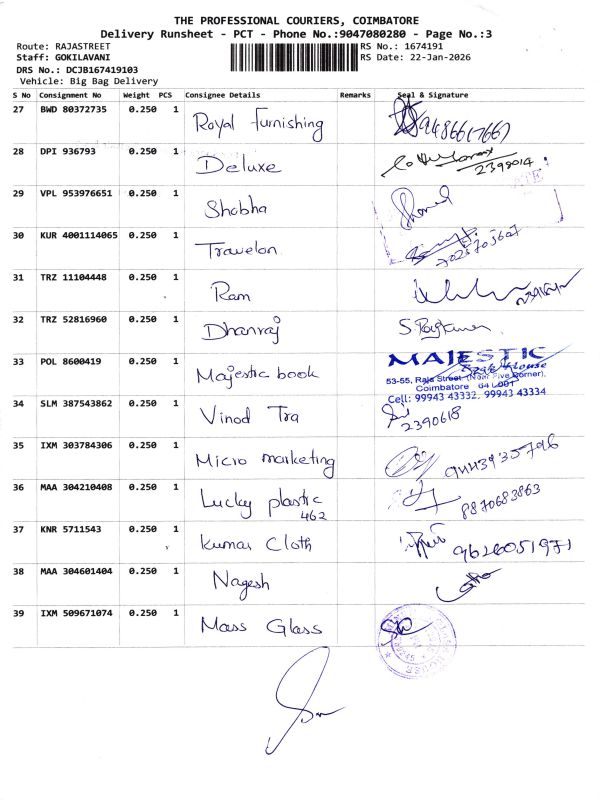 THE PROFESSIONAL COURIERS, COIMBATORE
Delivery Runsheet - PCT - Phone No.:9047080280 - Page No.:3
Route: RAJASTREET
RS No.: 1674191
Staff: GOKILAVANI
RS Date: 22-Jan-2026
DRS No.: DCJB167419103
Vehicle: Big Bag Delivery
S No Consignment No Weight PCS Consignee Details Remarks Seal & Signature
27 BWD 80372735 0.250 1 Royal Furnishing
28 DPI 936793 0.250 1 Deluxe 2398014
29 VPL 953976651 0.250 1 Shobha
30 KUR 4001114065 0.250 1 Travelon
31 TRZ 11104448 0.250 1 Ram
32 TRZ 52816960 0.250 1 Dhanraj
33 POL 8600419 0.250 1 Majestic book MAJESTIC
Book House
53-55, Raja Street (Near Five Corner),
Coimbatore 641001
Cell: 99943 43332, 99943 43334
34 SLM 387543862 0.250 1 Vinod Tra 2390618
35 IXM 303784306 0.250 1 Micro marketing
36 MAA 304210408 0.250 1 Lucky plastic 8870683863
462
37 KNR 5711543 0.250 1 Kumar Cloth 9626051971
38 MAA 304601404 0.250 1 Nagesh
39 IXM 509671074 0.250 1 Mass Glass